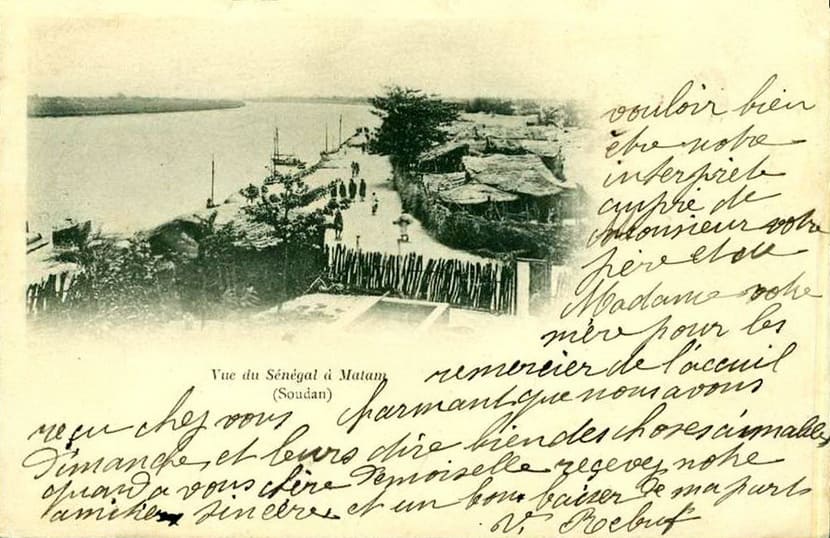 vouloir bien
être notre
interprète
auprè de
Monsieur votre
père et de
Madame votre
mère pour les
Vue du Sénégal à Matam
(Soudan)
remercier de l'acceuil
charmant que nous avons
reçu chez vous
Dimanche, et leurs dire bien des choses aimables
quand a vous chère Demoiselle recevez notre
amitier sincère et un bon baiser de ma part
V. Rebuf